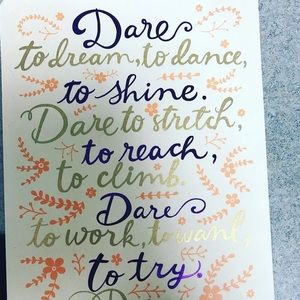 Dare
to dream, to dance,
to shine.
Dare to stretch,
to reach,
to climb.
Dare
to work, to want,
to try.